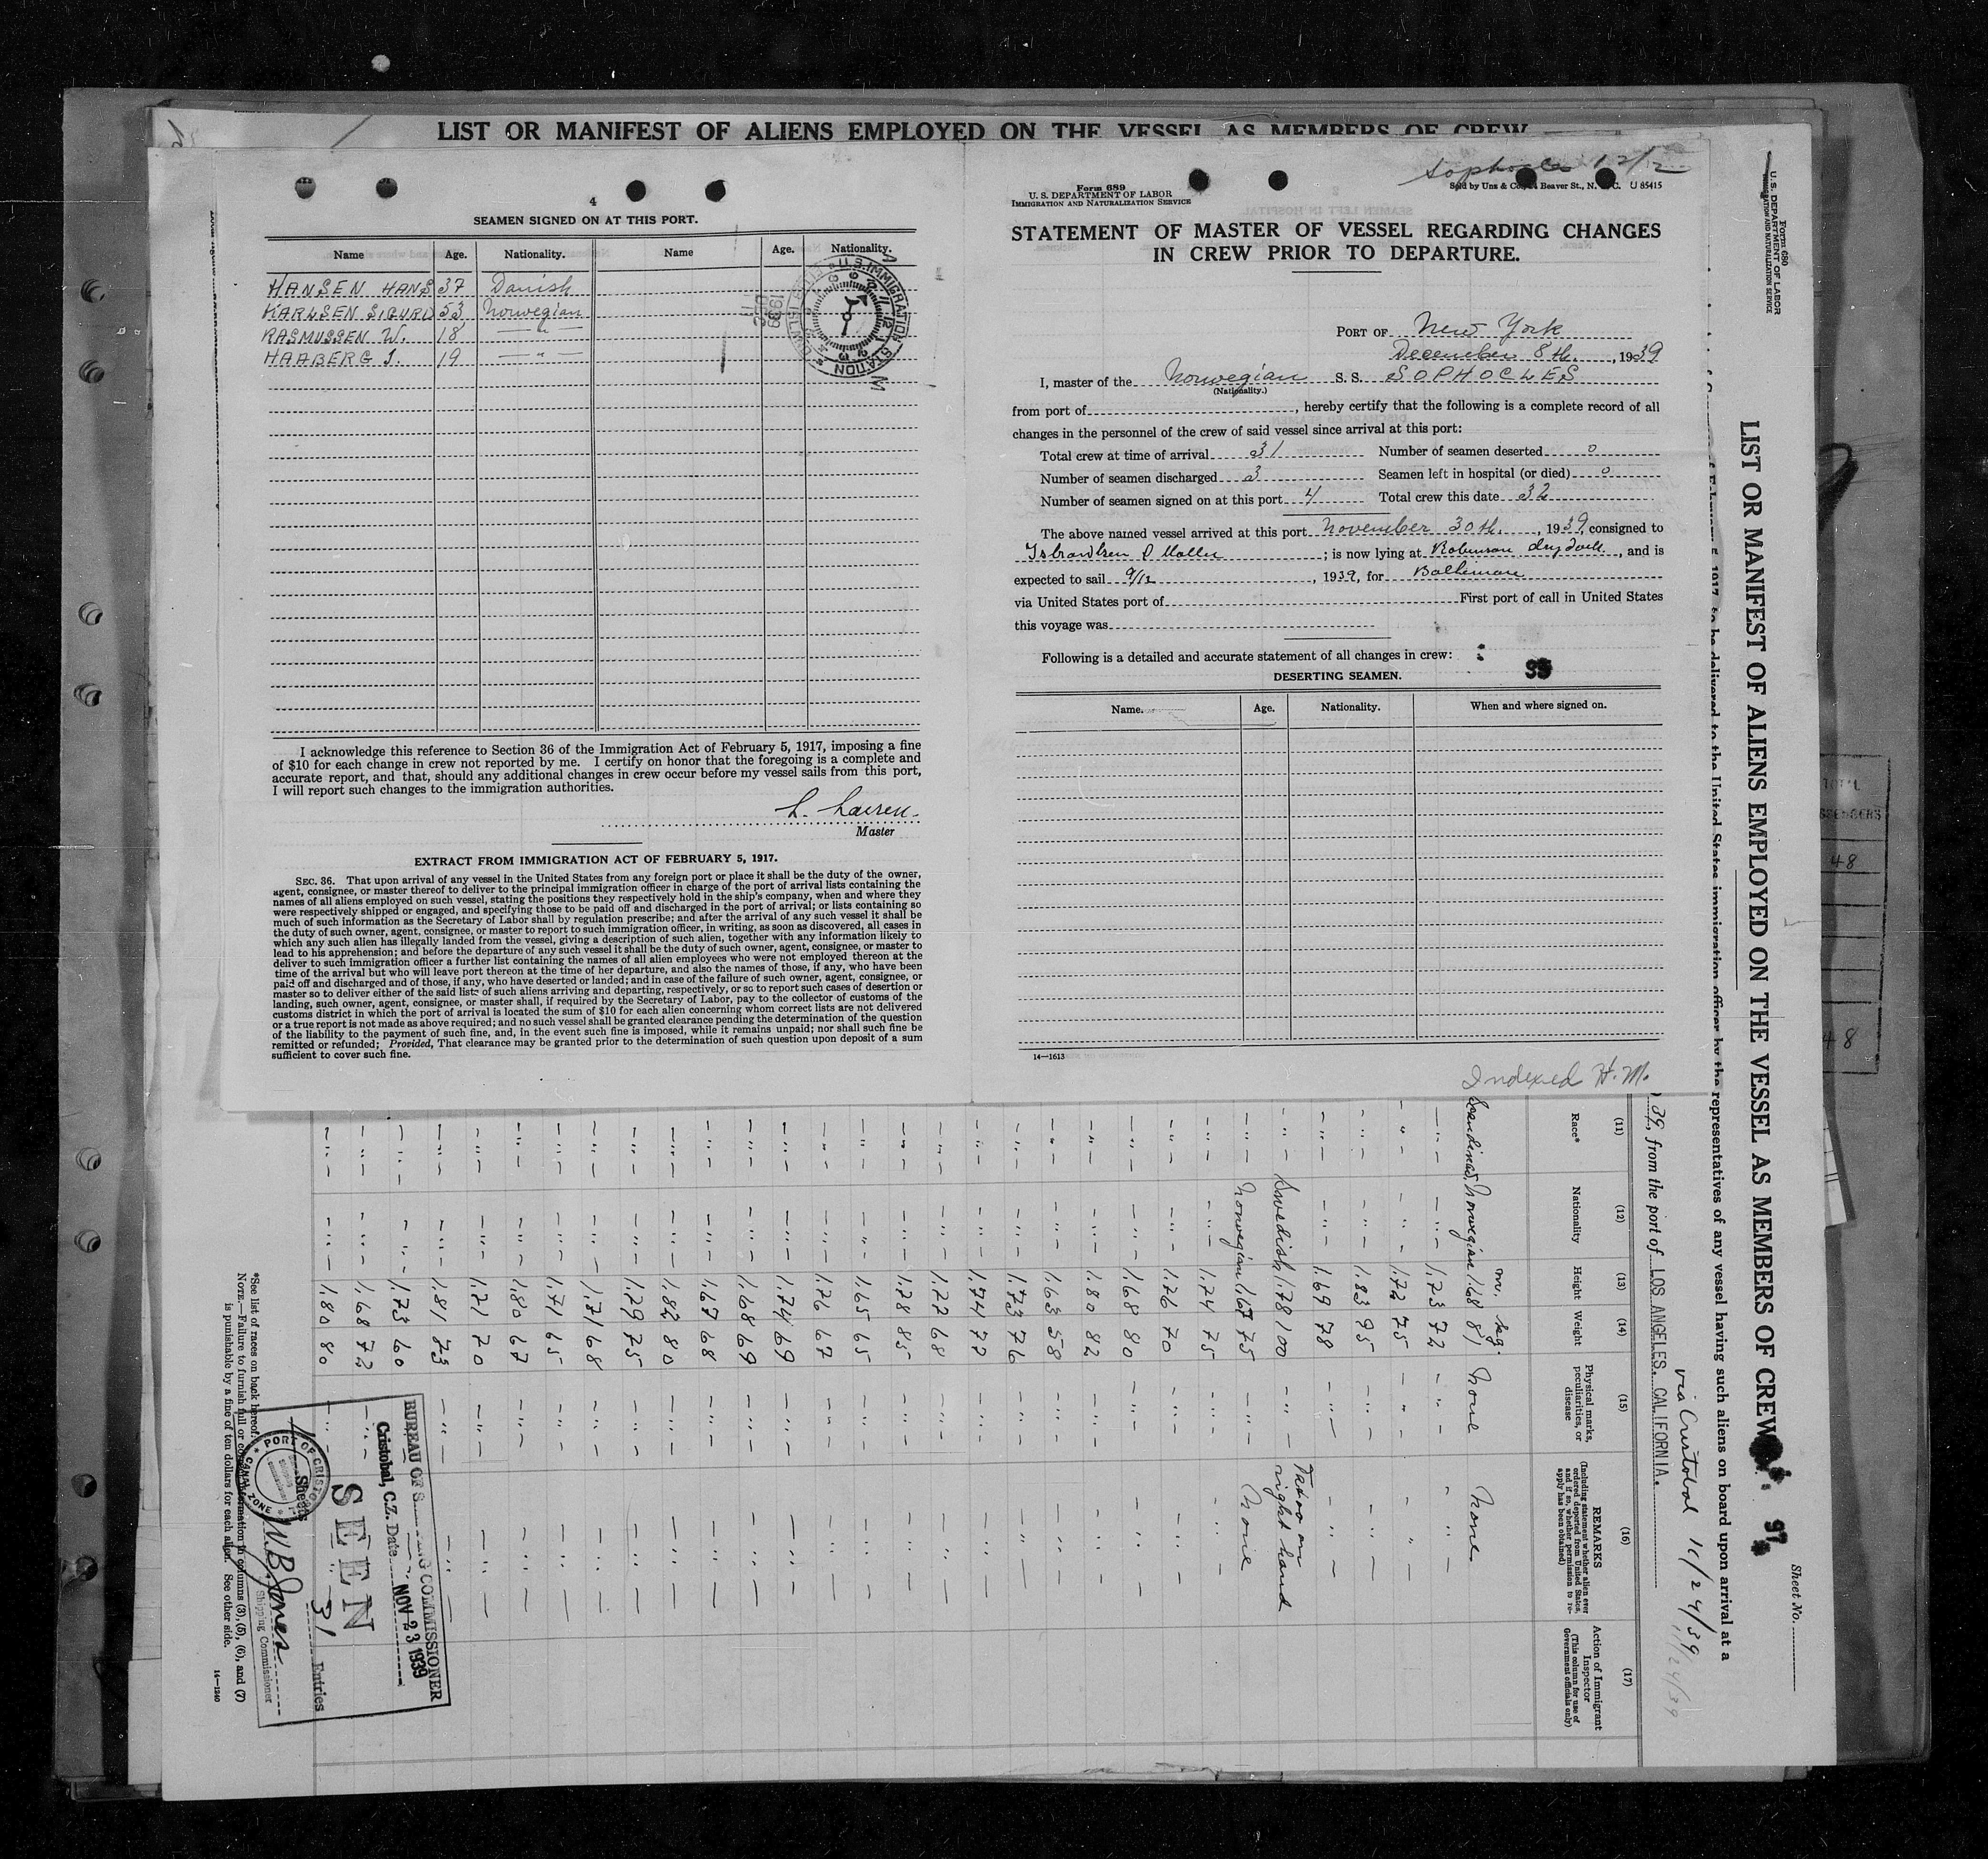 LIST OR MANIFEST OF ALIENS EMPLOYED ON THE VESSEL AS MEMBERS OF CREW
4
SEAMEN SIGNED ON AT THIS PORT.
Name Age. Nationality. Name Age. Nationality.
HANSEN HANS 37 Danish
KARLSEN SIGURD 53 Norwegian
RASMUSSEN W. 18 —"—
HAABERG J. 19 —"—
U.S. IMMIGRATION STATION
1939
I acknowledge this reference to Section 36 of the Immigration Act of February 5, 1917, imposing a fine
of $10 for each change in crew not reported by me. I certify on honor that the foregoing is a complete and
accurate report, and that, should any additional changes in crew occur before my vessel sails from this port,
I will report such changes to the immigration authorities.
Master
EXTRACT FROM IMMIGRATION ACT OF FEBRUARY 5, 1917.
SEC. 36. That upon arrival of any vessel in the United States from any foreign port or place it shall be the duty of the owner,
agent, consignee, or master thereof to deliver to the principal immigration officer in charge of the port of arrival lists containing the
names of all aliens employed on such vessel, stating the positions they respectively hold in the ship's company, when and where they
were respectively shipped or engaged, and specifying those to be paid off and discharged in the port of arrival; or lists containing so
much of such information as the Secretary of Labor shall by regulation prescribe; and after the arrival of any such vessel it shall be
the duty of such owner, agent, consignee, or master to report to such immigration officer, in writing, as soon as discovered, all cases in
which any such alien has illegally landed from the vessel, giving a description of such alien, together with any information likely to
lead to his apprehension; and before the departure of any such vessel it shall be the duty of such owner, agent, consignee, or master to
deliver to such immigration officer a further list containing the names of all alien employees who were not employed thereon at the
time of the arrival but who will leave port thereon at the time of her departure, and also the names of those, if any, who have been
paid off and discharged and of those, if any, who have deserted or landed; and in case of the failure of such owner, agent, consignee, or
master so to deliver either of the said lists of such aliens arriving and departing, respectively, or so to report such cases of desertion or
landing, such owner, agent, consignee, or master shall, if required by the Secretary of Labor, pay to the collector of customs of the
customs district in which the port of arrival is located the sum of $10 for each alien concerning whom correct lists are not delivered
or a true report is not made as above required; and no such vessel shall be granted clearance pending the determination of the question
of the liability to the payment of such fine, and, in the event such fine is imposed, while it remains unpaid; nor shall such fine be
remitted or refunded; Provided, That clearance may be granted prior to the determination of such question upon deposit of a sum
sufficient to cover such fine.
Sophocles 12/12
Form 689
U. S. DEPARTMENT OF LABOR
IMMIGRATION AND NATURALIZATION SERVICE
Sold by Unz & Co., Beaver St., N. Y. C. U 85415
STATEMENT OF MASTER OF VESSEL REGARDING CHANGES
IN CREW PRIOR TO DEPARTURE.
PORT OF New York
December 8th, 1939
I, master of the Norwegian S. S. SOPHOCLES
(Nationality.)
from port of , hereby certify that the following is a complete record of all
changes in the personnel of the crew of said vessel since arrival at this port:
Total crew at time of arrival 31 Number of seamen deserted 0
Number of seamen discharged 3 Seamen left in hospital (or died) 0
Number of seamen signed on at this port 4 Total crew this date 32
The above named vessel arrived at this port November 30th, 1939, consigned to
; is now lying at Robinson dry dock, and is
expected to sail 9/12, 1939, for Baltimore
via United States port of First port of call in United States
this voyage was
Following is a detailed and accurate statement of all changes in crew:
DESERTING SEAMEN.
Name. Age. Nationality. When and where signed on.
14—1613
Indexed H.M.
Form 680
U. S. DEPARTMENT OF LABOR
IMMIGRATION AND NATURALIZATION SERVICE
Sheet No.
LIST OR MANIFEST OF ALIENS EMPLOYED ON THE VESSEL AS MEMBERS OF CREW
97
to be delivered to the United States immigration officer by the representatives of any vessel having such aliens on board upon arrival at a
via Cristobal 11/24/39
11/24/39
39, from the port of LOS ANGELES. CALIFORNIA.
(11) (12) (13) (14) (15) (16) (17)
Race* Nationality Height Weight Physical marks, peculiarities, or disease REMARKS (Including statement whether alien ever ordered deported from United States, and if so, whether permission to reapply has been obtained) Action of Immigrant Inspector (This column for use of Government officials only)
m. kg.
Scandinav. Norwegian 1.68 81 None None
—"— —"— 1.73 72 —"— —"—
—"— —"— 1.72 75 —"— —"—
—"— —"— 1.83 95 —"— —"—
—"— —"— 1.69 78 —"— —"—
—"— Swedish 1.78 100 —"— Tatoo on right hand
—"— Norwegian 1.67 75 —"— None
—"— —"— 1.74 75 —"— —"—
—"— —"— 1.76 70 —"— —"—
—"— —"— 1.68 80 —"— —"—
—"— —"— 1.80 82 —"— —"—
—"— —"— 1.63 58 —"— —"—
—"— —"— 1.73 76 —"— —"—
—"— —"— 1.74 72 —"— —"—
—"— —"— 1.77 68 —"— —"—
—"— —"— 1.78 85 —"— —"—
—"— —"— 1.65 65 —"— —"—
—"— —"— 1.76 67 —"— —"—
—"— —"— 1.74 69 —"— —"—
—"— —"— 1.68 69 —"— —"—
—"— —"— 1.67 68 —"— —"—
—"— —"— 1.82 80 —"— —"—
—"— —"— 1.79 75 —"— —"—
—"— —"— 1.71 68 —"— —"—
—"— —"— 1.71 65 —"— —"—
—"— —"— 1.80 67 —"— —"—
—"— —"— 1.71 70 —"— —"—
—"— —"— 1.81 73 —"— —"—
—"— —"— 1.73 60
—"— —"— 1.68 72 —"—
—"— —"— 1.80 80 —"—
BUREAU OF SHIPPING COMMISSIONER
Cristobal, C.Z. Date NOV 23 1939
SEEN
1 Sheets 31 Entries
W.B. Jones
Shipping Commissioner
PORT OF CRISTOBAL CANAL ZONE
*See list of races on back hereof.
NOTE.—Failure to furnish full or correct information in columns (3), (5), (6), and (7)
is punishable by a fine of ten dollars for each alien. See other side.
14—1240
TOTAL
48
48